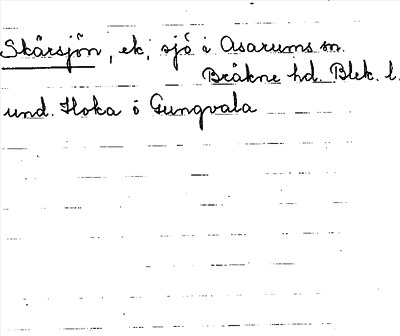 Skärsjön, ek, sjö i Asarums sn.
Bräkne hd. Blek. l.
und. Hoka ö Gungvala